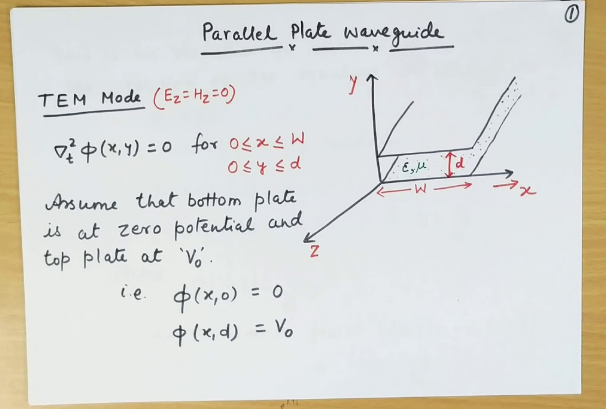 ①
Parallel Plate Waveguide
TEM Mode (Ez=Hz=0)
∇t²ϕ(x,y) = 0 for 0≤x≤W
0≤y≤d
Assume that bottom plate
is at zero potential and
top plate at 'V₀'.
i.e. ϕ(x,0) = 0
ϕ(x,d) = V₀
y
ε,μ
d
W
x
z